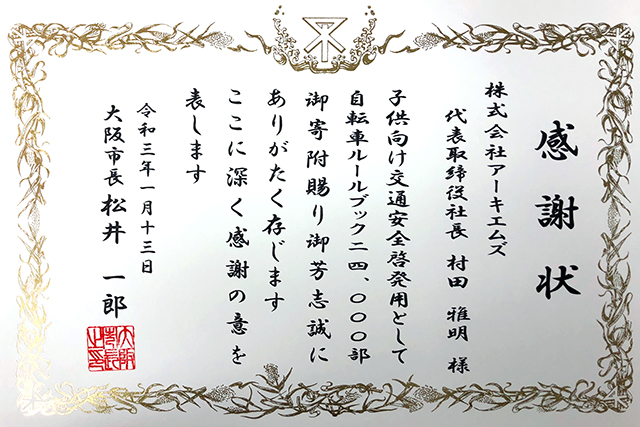 感謝状
株式会社アーキエムズ
代表取締役社長 村田 雅明 様
子供向け交通安全啓発用として
自転車ルールブック二四、〇〇〇部
御寄附賜り御芳志誠に
ありがたく存じます
ここに深く感謝の意を
表します
令和三年一月十三日
大阪市長 松井 一郎